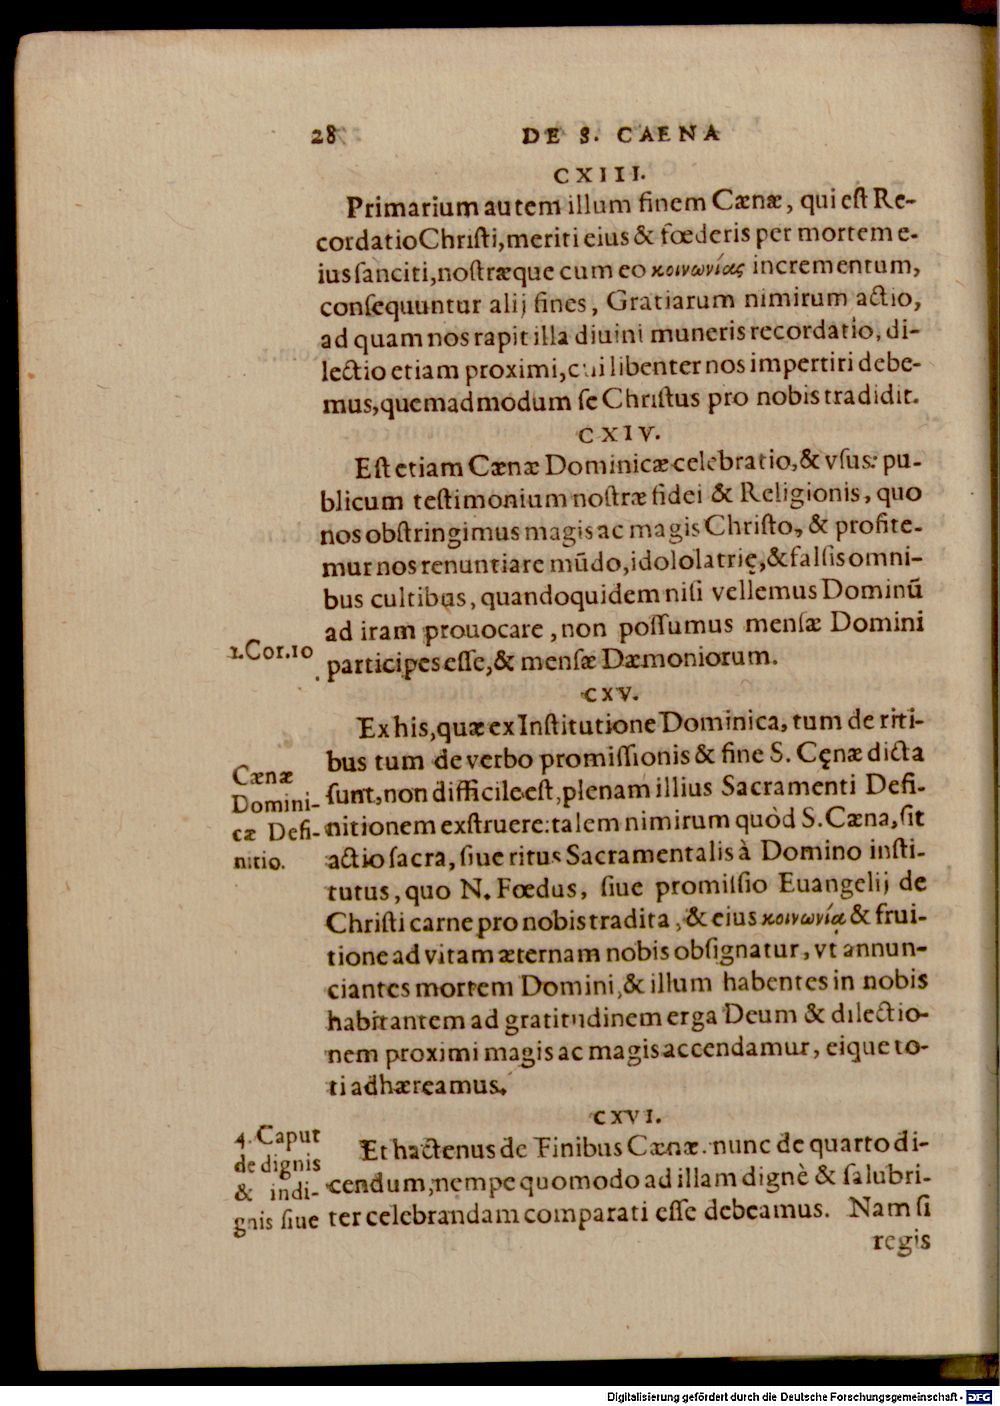 28 DE S. CAENA
CXIII.
Primarium autem illum finem Cænæ, qui est Re-
cordatio Christi, meriti eius & fœderis per mortem e-
ius sanciti, nostræque cum eo κοινωνίας incrementum,
consequuntur alij fines, Gratiarum nimirum actio,
ad quam nos rapit illa diuini muneris recordatio, di-
lectio etiam proximi, cui libenter nos impertiri debe-
mus, quemadmodum se Christus pro nobis tradidit.
CXIV.
Est etiam Cænæ Dominicæ celebratio, & vsus: pu-
blicum testimonium nostræ fidei & Religionis, quo
nos obstringimus magis ac magis Christo, & profite-
mur nos renuntiare mūdo, idololatrię, & falsis omni-
bus cultibus, quandoquidem nisi vellemus Dominū
ad iram prouocare, non possumus mensæ Domini
1.Cor.10
participes esse, & mensæ Dæmoniorum.
CXV.
Ex his, quæ ex Institutione Dominica, tum de riti-
bus tum de verbo promissionis & fine S. Cęnæ dicta
Cænæ
Domini-
cæ Defi-
nitio.
sunt, non difficile est, plenam illius Sacramenti Defi-
nitionem exstruere: talem nimirum quòd S. Cæna, sit
actio sacra, siue ritus Sacramentalis à Domino insti-
tutus, quo N. Fœdus, siue promissio Euangelij de
Christi carne pro nobis tradita, & eius κοινωνίᾳ & frui-
tione ad vitam æternam nobis obsignatur, vt annun-
ciantes mortem Domini, & illum habentes in nobis
habitantem ad gratitudinem erga Deum & dilectio-
nem proximi magis ac magis accendamur, eique to-
ti adhæreamus.
CXVI.
4. Caput
de dignis
& indi-
gnis siue
Et hactenus de Finibus Cænæ. nunc de quarto di-
cendum, nempe quomodo ad illam dignè & salubri-
ter celebrandam comparati esse debeamus. Nam si
regis
Digitalisierung gefördert durch die Deutsche Forschungsgemeinschaft - DFG